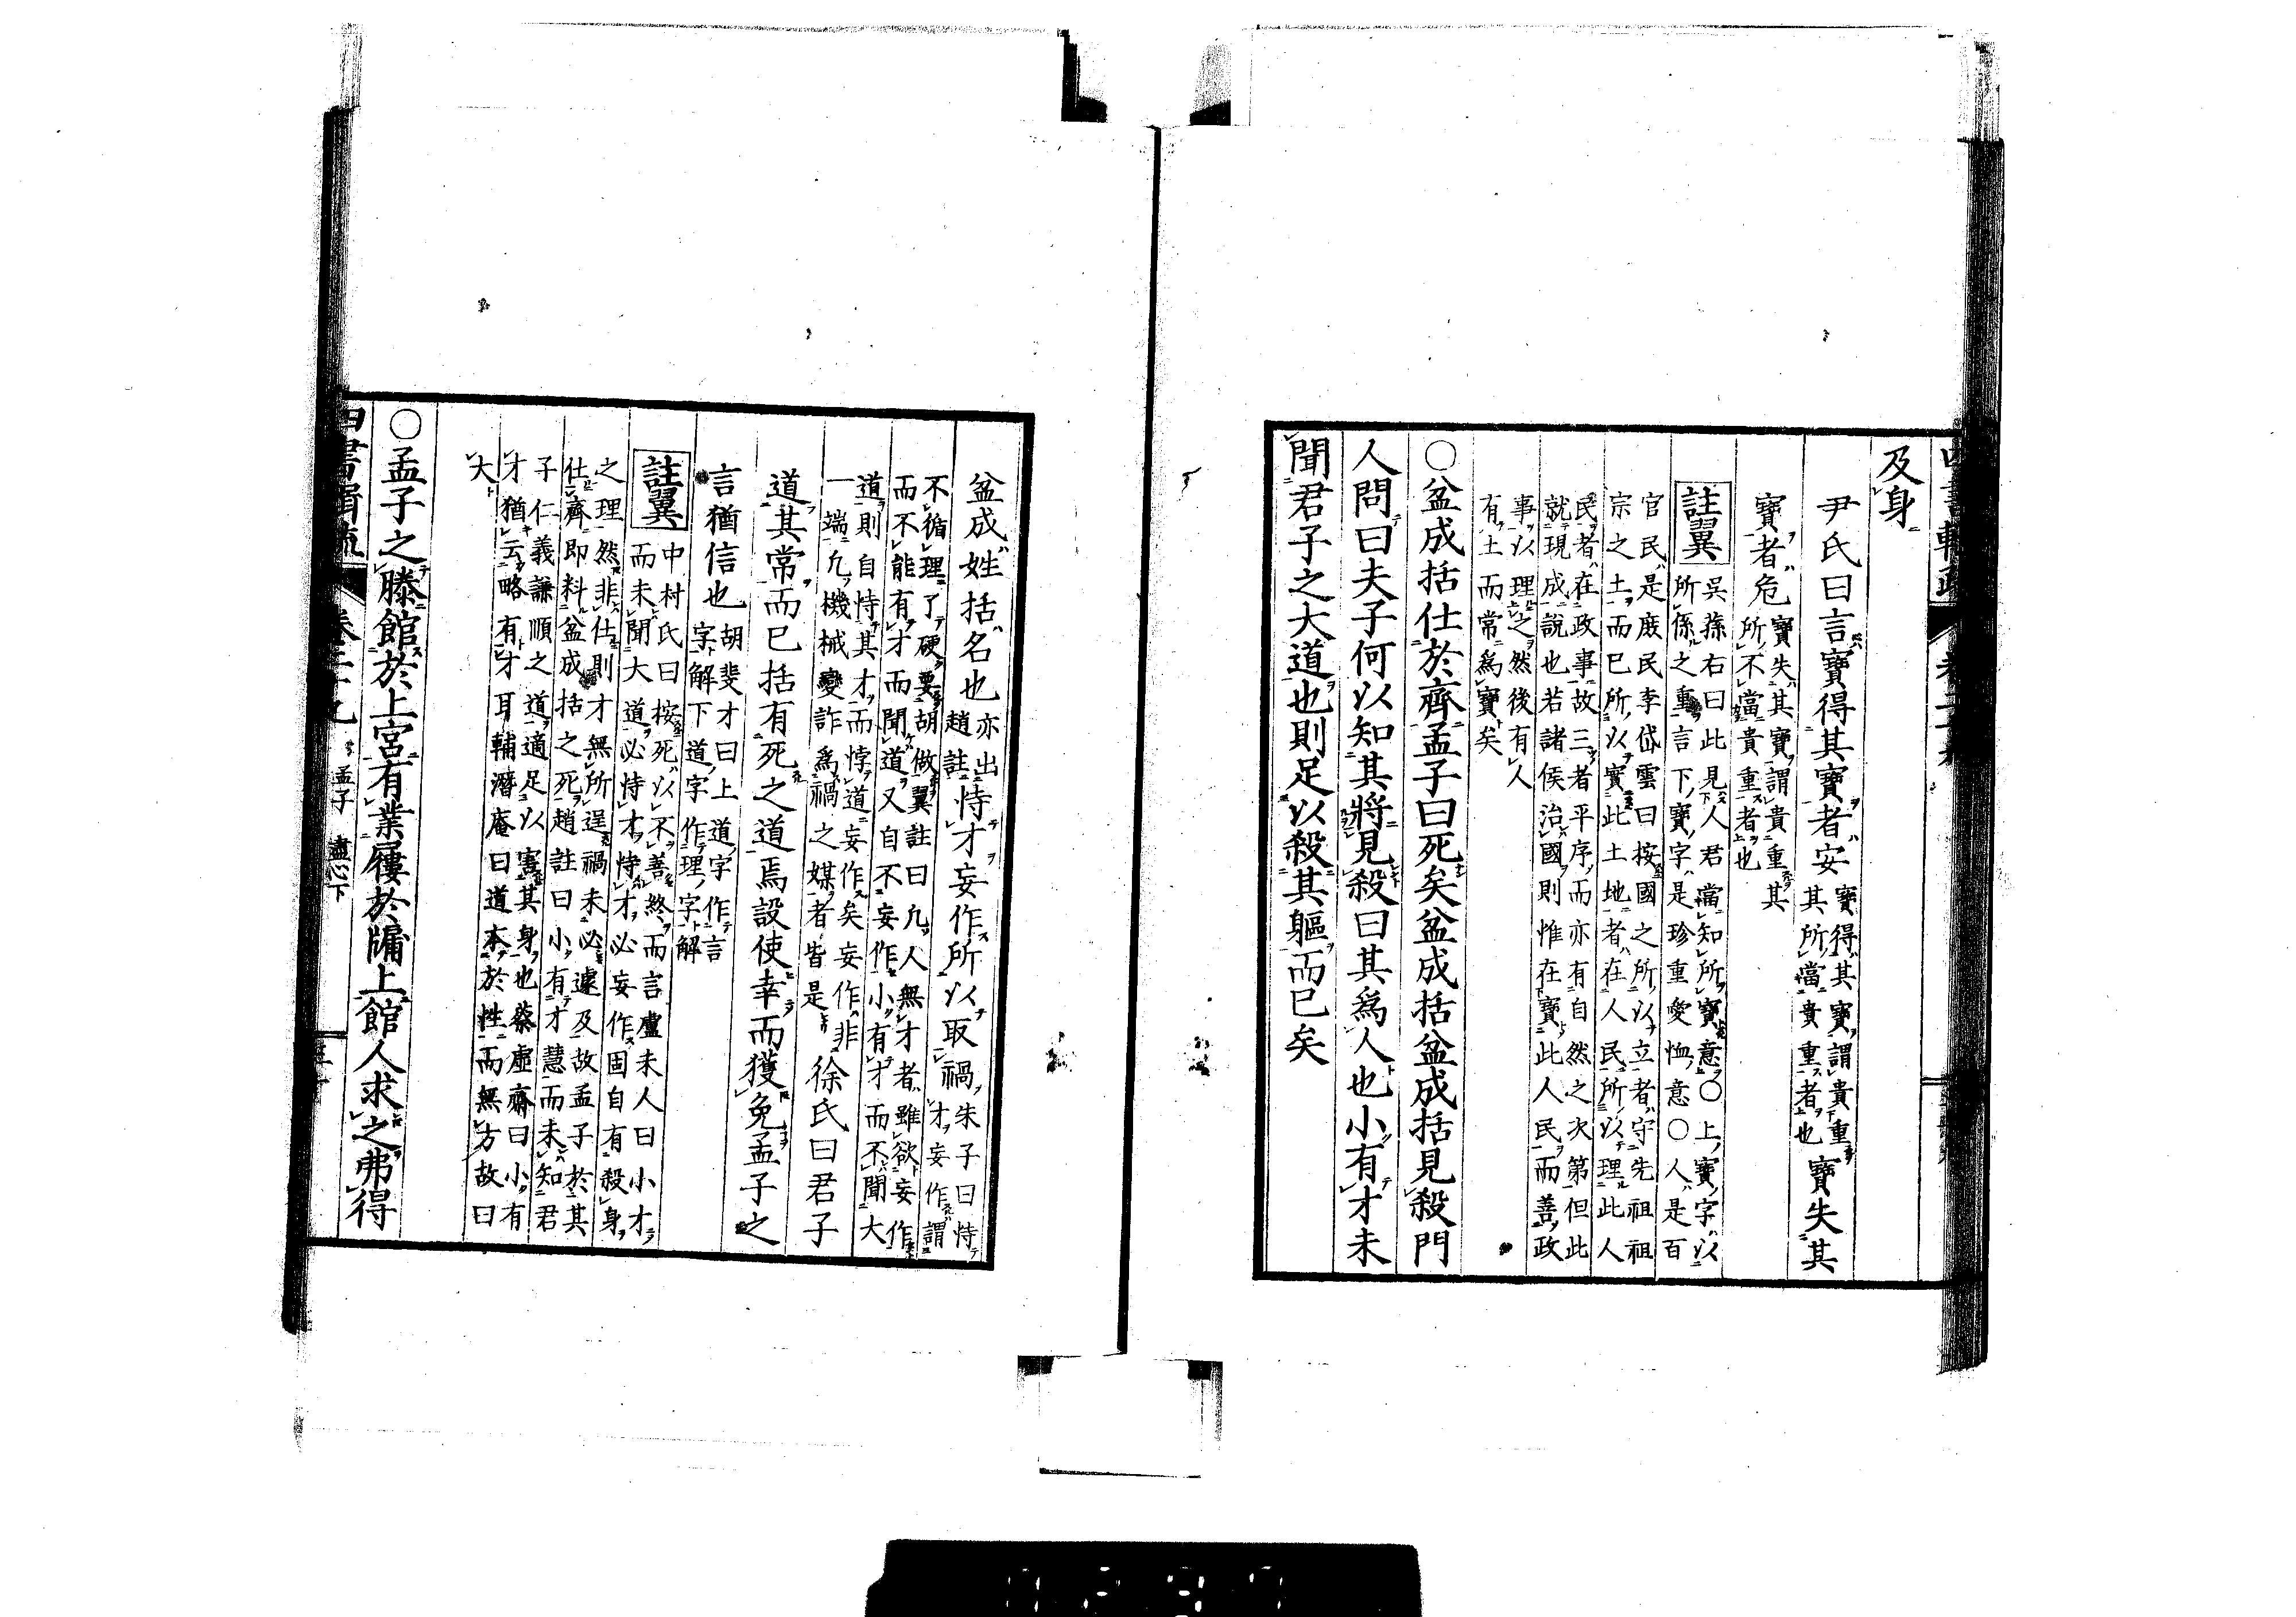 及身
尹氏曰言寶得其寶者安寶得其寶謂貴重其所當貴重者也寶失其
寶者危寶失其寶謂貴重其所不當貴重者也
註翼吳蓀右曰此見人君當知所寶意○上寶字以所係之重言下寶字是珍重愛恤意○人是百
官民是庶民李岱雲曰按國之所以立者守先祖祖宗之土而已所以實此土地者在人民所以理此人
民者在政事故三者平序而亦有自然之次第但此就現成說也若諸侯治國則惟在寶此人民而善政
事以理之然後有人有土而常爲寶矣
○盆成括仕於齊孟子曰死矣盆成括盆成括見殺門
人問曰夫子何以知其將見殺曰其爲人也小有才未
聞君子之大道也則足以殺其軀而已矣
盆成姓括名也亦出趙註恃才妄作所以取禍朱子曰恃才妄作謂
不循理了硬要胡做翼註曰凡人無才者雖欲妄作而不能有才而聞道又自不妄作小有才而不聞大
道則自恃其才而悖道妄作矣妄作非一端凡機械變詐爲禍之媒者皆是徐氏曰君子
道其常而已括有死之道焉設使幸而獲免孟子之
言猶信也胡斐才曰上道字作言字解下道字作理字解
註翼中村氏曰按死以不善終而言盧未人曰小才而未聞大道必恃才恃才必妄作固自有殺身
之理然非仕則才無所逞禍未必遽及故孟子於其仕齊即料盆成括之死趙註曰小有才慧而未知君
子仁義謙順之道適足以害其身也蔡虛齋曰小有才猶云略有才耳輔潛庵曰道本於性而無方故曰
大
○孟子之滕館於上宮有業屨於牖上館人求之弗得
四書輯疏
孟子 盡心下